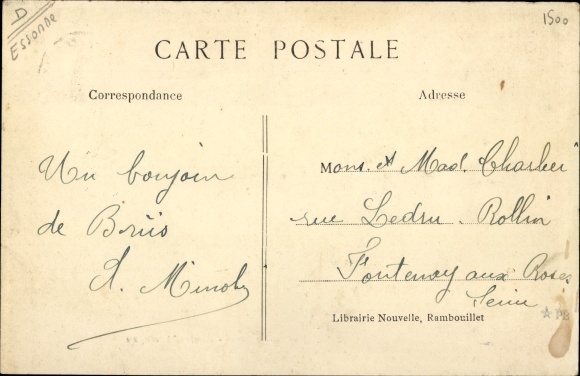 D
ESSONNE
1500
CARTE POSTALE
Correspondance
Adresse
Un bonjour
de Briis
Mons. et Mad. Charlier
rue Ledru-Rollin
Fontenay aux Roses
Seine
Librairie Nouvelle, Rambouillet